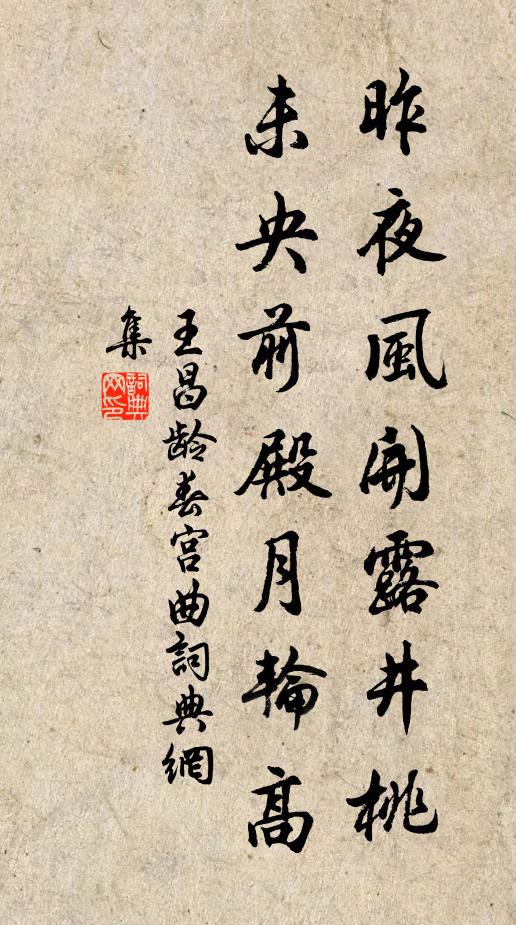 昨夜風開露井桃
未央前殿月輪高
王昌齡春宮曲詞典網
集
詞典
网印